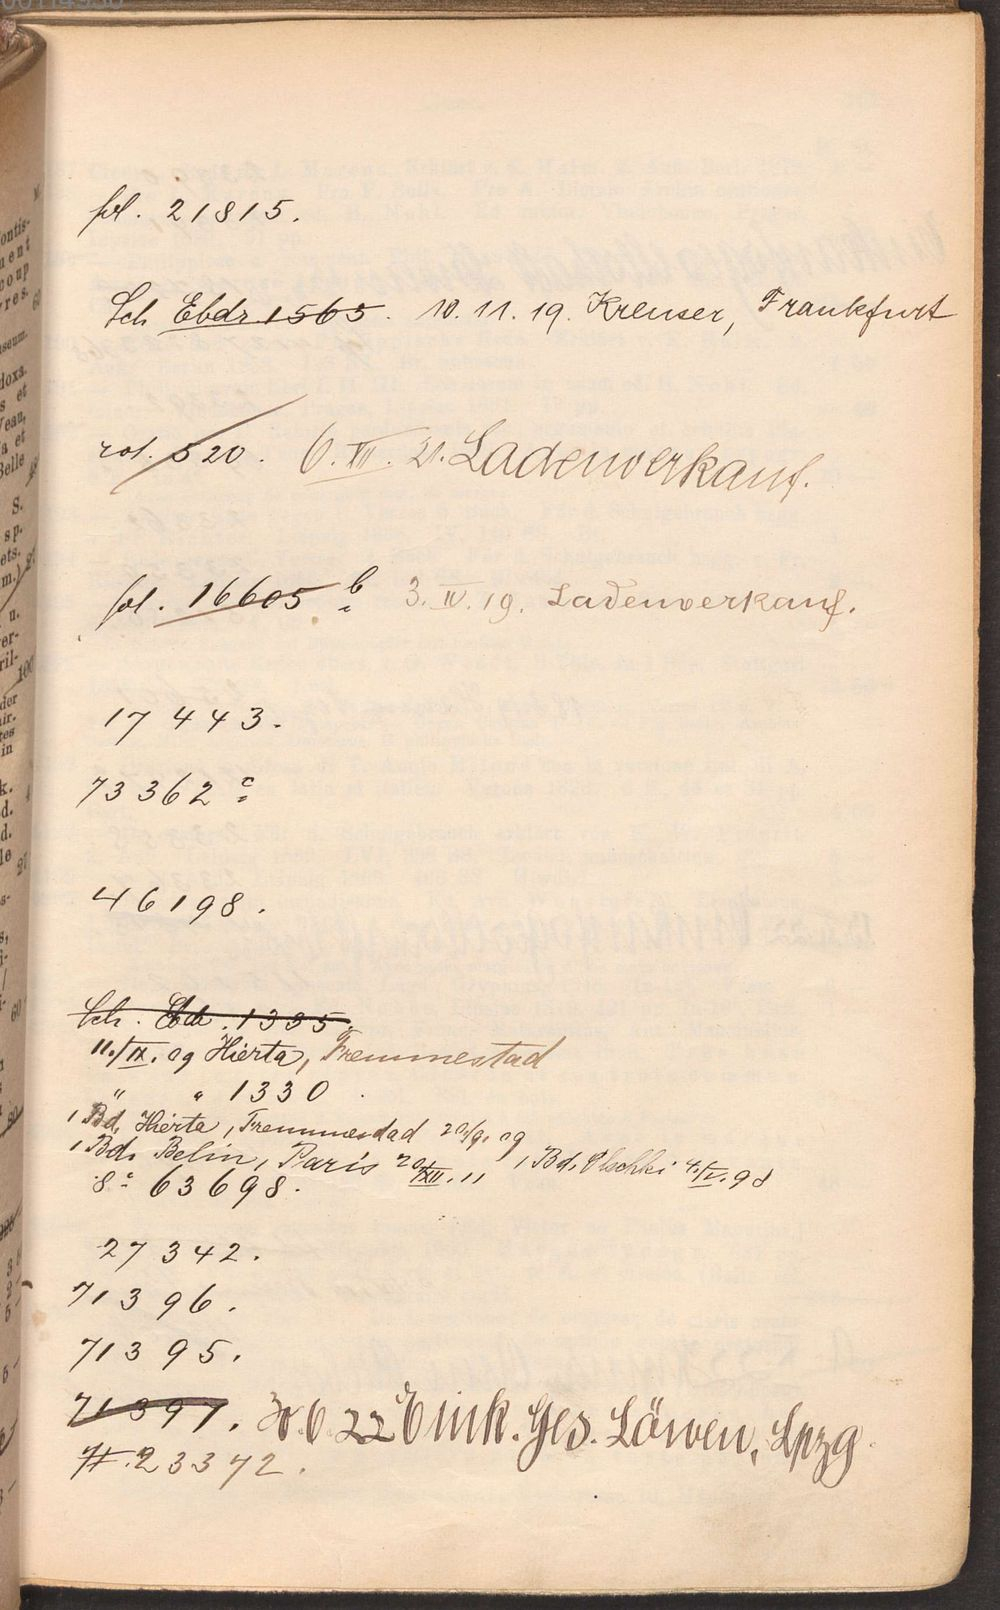 fol. 21815.
Sch Ebdr 1565. 10.11.19. Kreuser, Frankfurt
rot. 520. 6.VII.21. Ladenverkauf.
fol. 16605 b 3.IV.19. Ladenverkauf.
17443.
73362 c
46198.
Sch. Ebdr. 1335.
11./IX.09 Hierta, Fremmestad
" " 1330.
1 Bd. Hierta, Frammesdad 20/9.09
1 Bd. Belin, Paris 20/XII.11 1 Bd. Olschki 4./V.98
8° 63698.
27342.
71396.
71395.
71397. 30.6.22 Eink. Ges. Löwen, Lpzg
#. 23372.